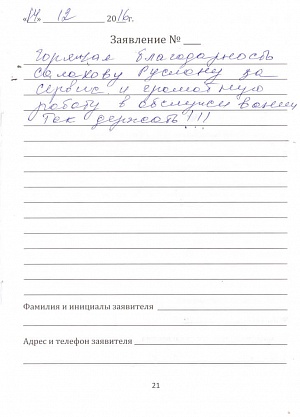 «14» 12 2016г.
Заявление № ___
Горячая благодарность
Салахову Руслану за
сервис и грамотную
работу в обслуживании
Так держать!!!
Фамилия и инициалы заявителя
Адрес и телефон заявителя
21